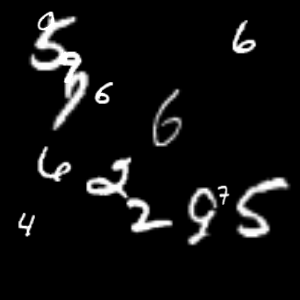 5 6
6
6
6 2
2 9 7 5
4